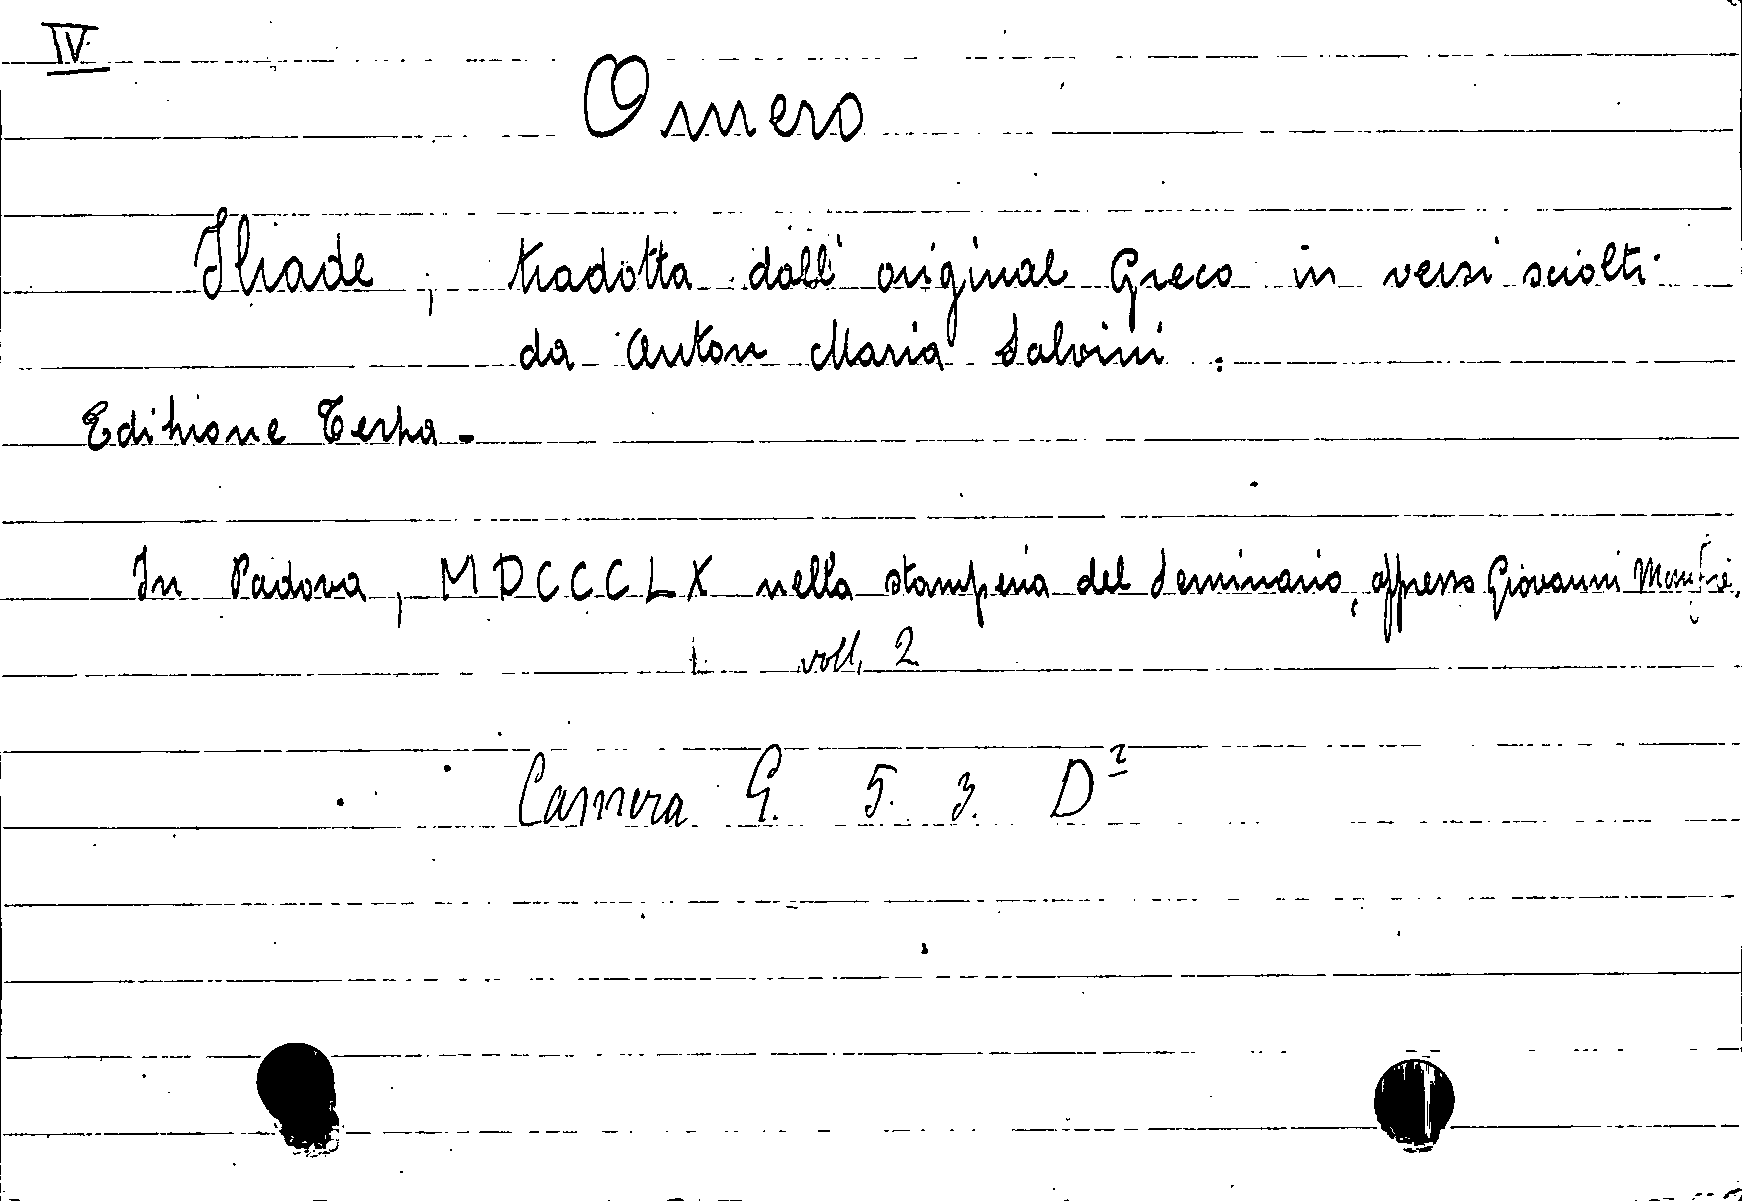 IV
Omero
Iliade, tradotta dall' original Greco in versi sciolti
da Anton Maria Salvini.
Edizione Terza.
In Padova, MDCCCLX nella stamperia del Seminario, appresso Giovanni Manfrè.
voll. 2
Camera G. 5. 3. D²